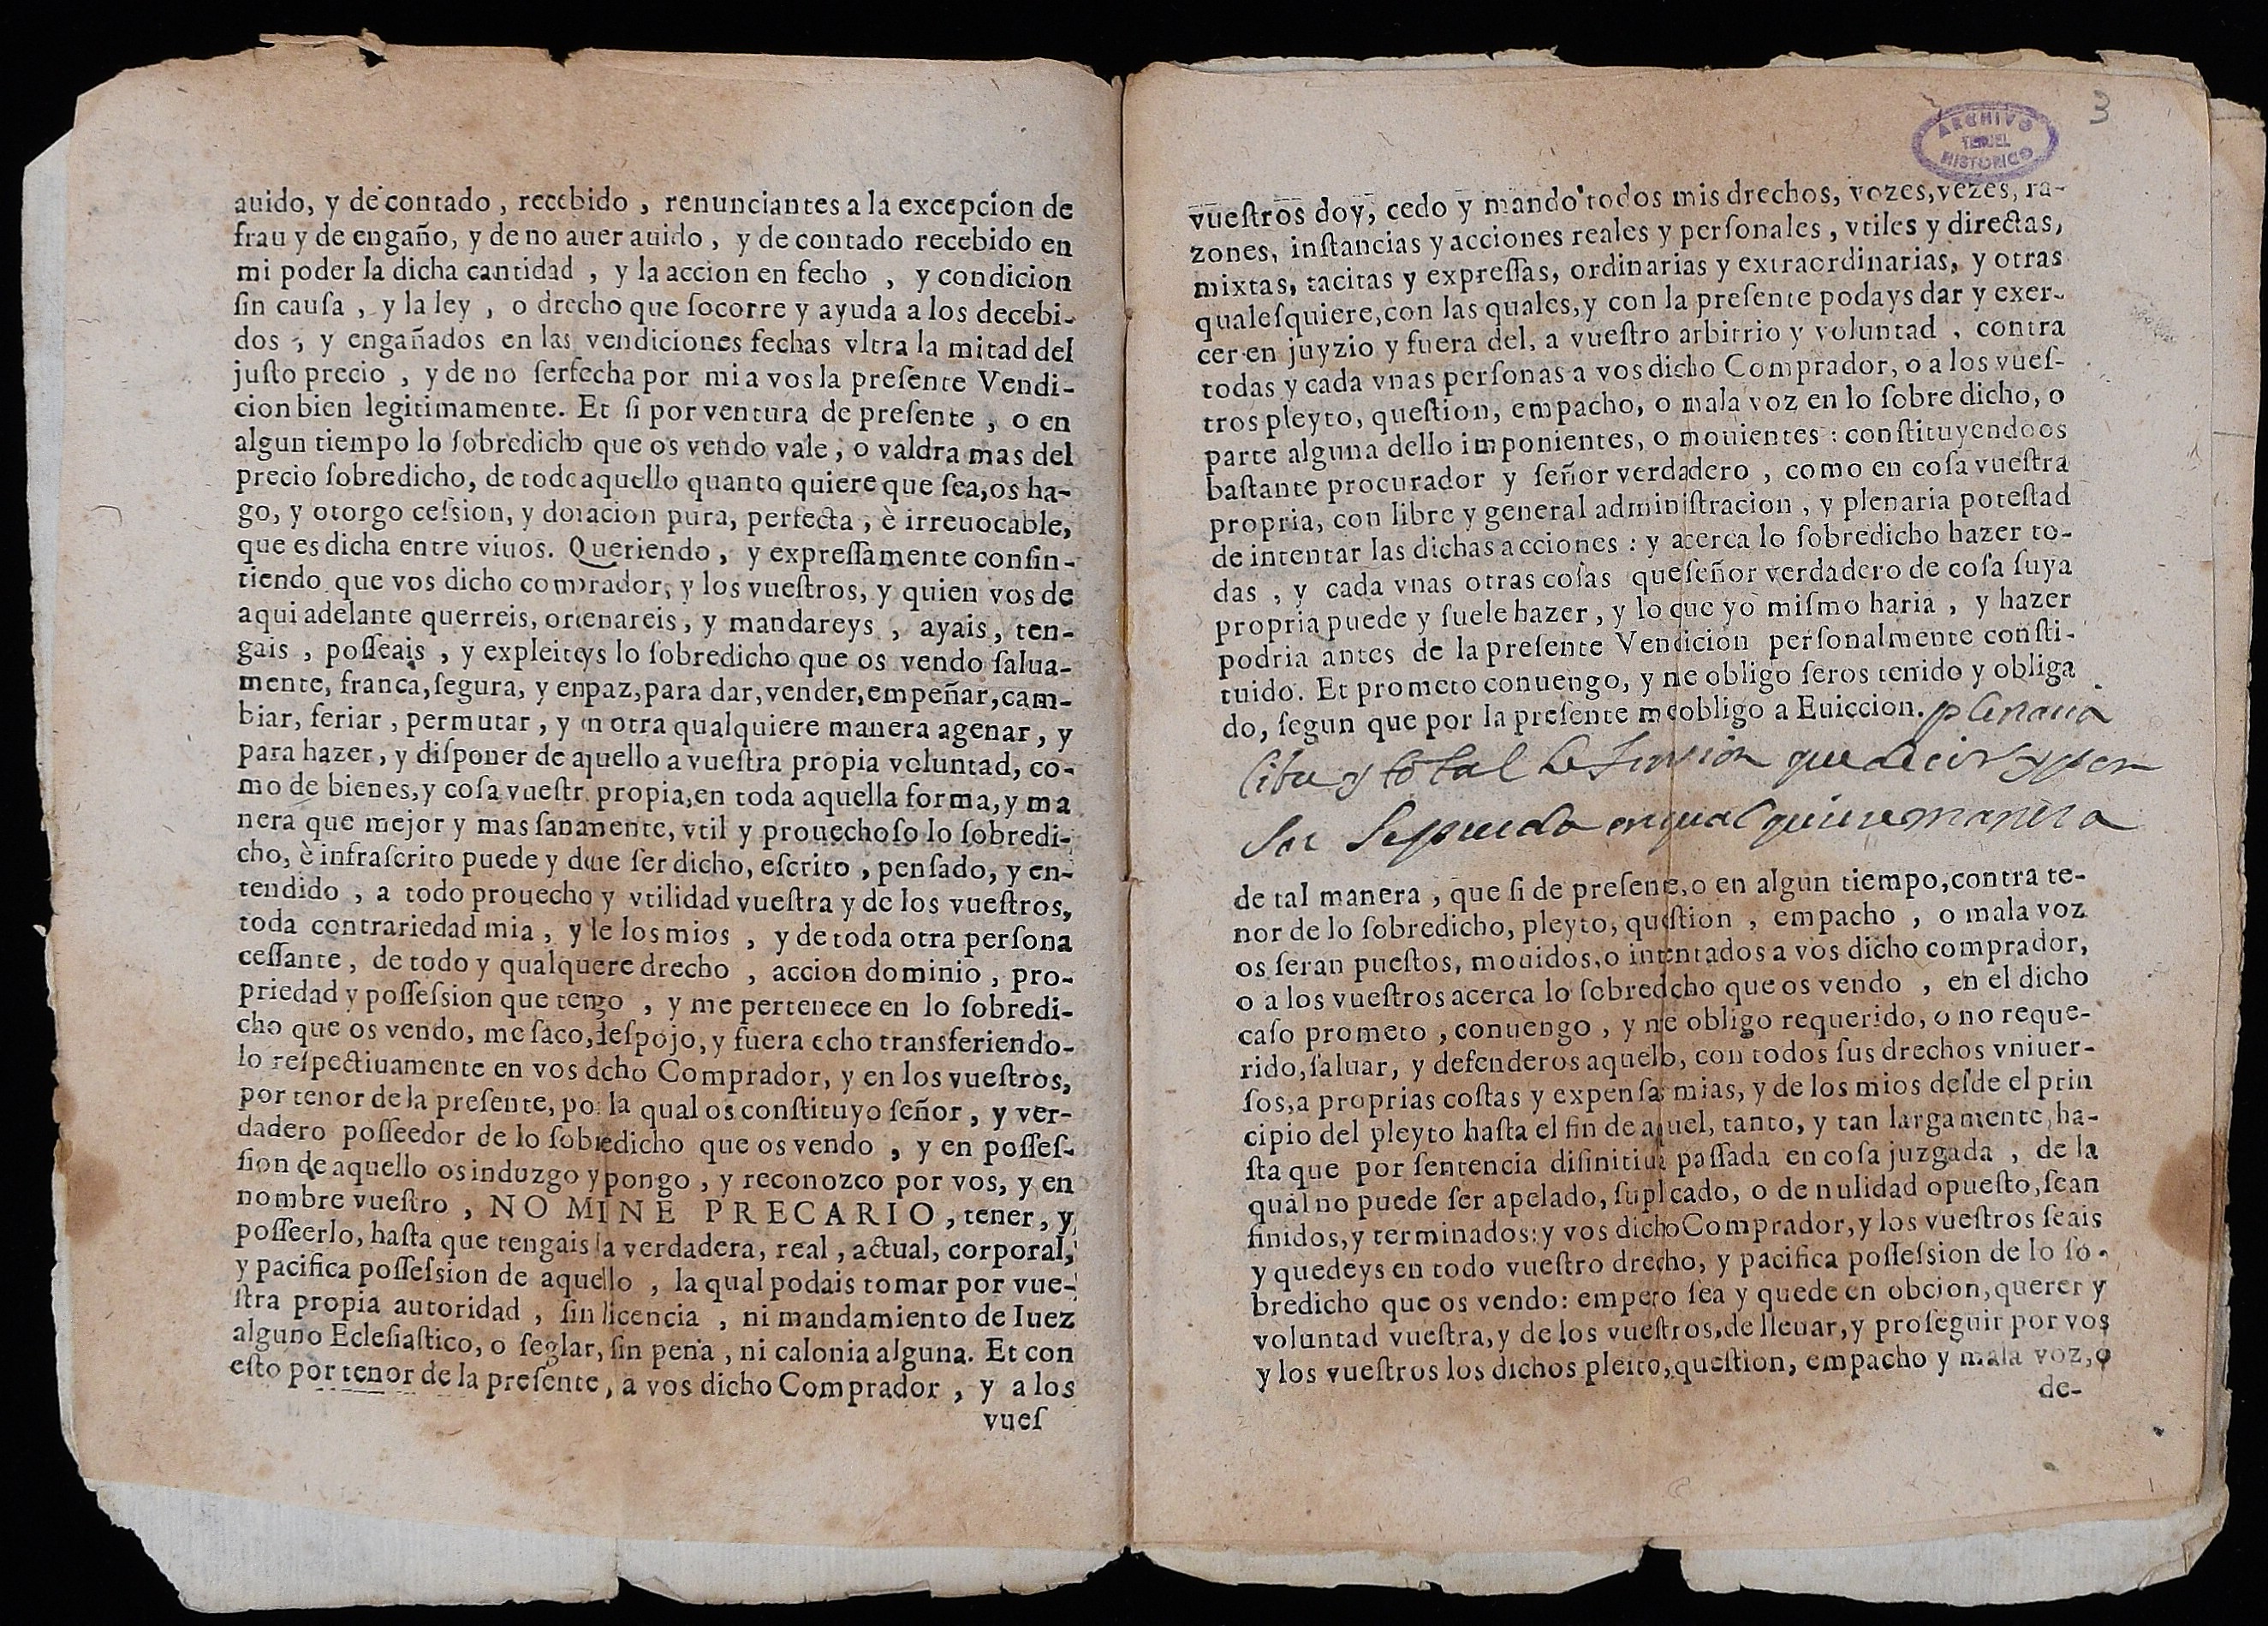 auido, y de contado, recebido, renunciantes a la excepcion de
frau y de engaño, y de no auer auido, y de contado recebido en
mi poder la dicha cantidad, y la accion en fecho, y condicion
sin causa, y la ley, o drecho que socorre y ayuda a los decebi-
dos, y engañados en las vendiciones fechas vltra la mitad del
justo precio, y de no ser fecha por mi a vos la presente Vendi-
cion bien legitimamente. Et si por ventura de presente, o en
algun tiempo lo sobredicho que os vendo vale, o valdra mas del
precio sobredicho, de todo aquello quanto quiere que sea, os ha-
go, y otorgo cession, y donacion pura, perfecta, è irreuocable,
que es dicha entre viuos. Queriendo, y expressamente consin-
tiendo que vos dicho comprador, y los vuestros, y quien vos de
aqui adelante querreis, ordenareis, y mandareys, ayais, ten-
gais, posseais, y expleiteys lo sobredicho que os vendo salua-
mente, franca, segura, y en paz, para dar, vender, empeñar, cam-
biar, feriar, permutar, y en otra qualquiere manera agenar, y
para hazer, y disponer de aquello a vuestra propia voluntad, co-
mo de bienes, y cosa vuestra propia, en toda aquella forma, y ma
nera que mejor y mas sanamente, vtil y prouechoso lo sobredi-
cho, è infrascrito puede y deue ser dicho, escrito, pensado, y en-
tendido, a todo prouecho y vtilidad vuestra y de los vuestros,
toda contrariedad mia, y de los mios, y de toda otra persona
cessante, de todo y qualquiere drecho, accion dominio, pro-
priedad y possession que tengo, y me pertenece en lo sobredi-
cho que os vendo, me saco, despojo, y fuera echo transferiendo-
lo respectiuamente en vos dicho Comprador, y en los vuestros,
por tenor de la presente, por la qual os constituyo señor, y ver-
dadero posseedor de lo sobredicho que os vendo, y en posses-
sion de aquello os induzgo y pongo, y reconozco por vos, y en
nombre vuestro, NOMINE PRECARIO, tener, y
posseerlo, hasta que tengais la verdadera, real, actual, corporal,
y pacifica possession de aquello, la qual podais tomar por vue-
stra propia autoridad, sin licencia, ni mandamiento de Iuez
alguno Eclesiastico, o seglar, sin pena, ni calonia alguna. Et con
esto por tenor de la presente, a vos dicho Comprador, y a los
vues
ARCHIVO
TERUEL
HISTORICO
3
vuestros doy, cedo y mando todos mis drechos, vozes, vezes, ra-
zones, instancias y acciones reales y personales, vtiles y directas,
mixtas, tacitas y expressas, ordinarias y extraordinarias, y otras
qualesquiere, con las quales, y con la presente podays dar y exer-
cer en juyzio y fuera del, a vuestro arbitrio y voluntad, contra
todas y cada vnas personas a vos dicho Comprador, o a los vues-
tros pleyto, question, empacho, o mala voz en lo sobre dicho, o
parte alguna dello imponientes, o mouientes: constituyendoos
bastante procurador y señor verdadero, como en cosa vuestra
propria, con libre y general administracion, y plenaria potestad
de intentar las dichas acciones: y acerca lo sobredicho hazer to-
das, y cada vnas otras cosas que señor verdadero de cosa suya
propria puede y suele hazer, y lo que yo mismo haria, y hazer
podria antes de la presente Vendicion personalmente consti-
tuido. Et prometo conuengo, y me obligo seros tenido y obliga
do, segun que por la presente me obligo a Euiccion. plenaria
y total que decir y pen
sar se pueda en qual quiere manera
de tal manera, que si de presente, o en algun tiempo, contra te-
nor de lo sobredicho, pleyto, question, empacho, o mala voz
os seran puestos, mouidos, o intentados a vos dicho comprador,
o a los vuestros acerca lo sobredicho que os vendo, en el dicho
caso prometo, conuengo, y me obligo requerido, o no reque-
rido, saluar, y defenderos aquello, con todos sus drechos vniuer-
sos, a proprias costas y expensas mias, y de los mios desde el prin
cipio del pleyto hasta el fin de aquel, tanto, y tan largamente, ha-
sta que por sentencia difinitiua passada en cosa juzgada, de la
qual no puede ser apelado, suplicado, o de nulidad opuesto, sean
finidos, y terminados: y vos dicho Comprador, y los vuestros seais
y quedeys en todo vuestro drecho, y pacifica possession de lo so-
bredicho que os vendo: empero sea y quede en obcion, querer y
voluntad vuestra, y de los vuestros, de lleuar, y proseguir por vos
y los vuestros los dichos pleito, question, empacho y mala voz, o
de-